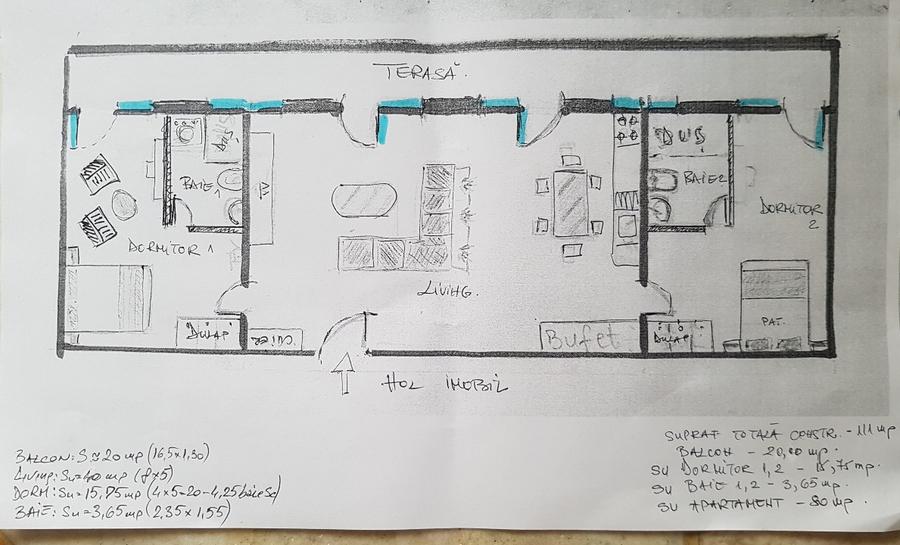 TERASĂ.
DUȘ
DUȘ
BAIE 1
BAIE 2
TV
DORMITOR
2
DORMITOR 1
LIVING.
PAT.
DULAP
Bufet
DULAP
HOL IMOBIL
SUPRAF TOTALĂ CONSTR. - 111 mp
BALCON - 20,00 mp.
SU DORMITOR 1, 2 - 15,75 mp.
SU BAIE 1, 2 - 3,65 mp.
SU APARTAMENT - 80 mp.
BALCON: S≈20 mp (16,5x1,30)
LIVING: Su=40 mp (8x5)
DORM: Su=15,75 mp (4x5=20-4,25 baie Sc)
BAIE: Su=3,65 mp (2,35x1,55)